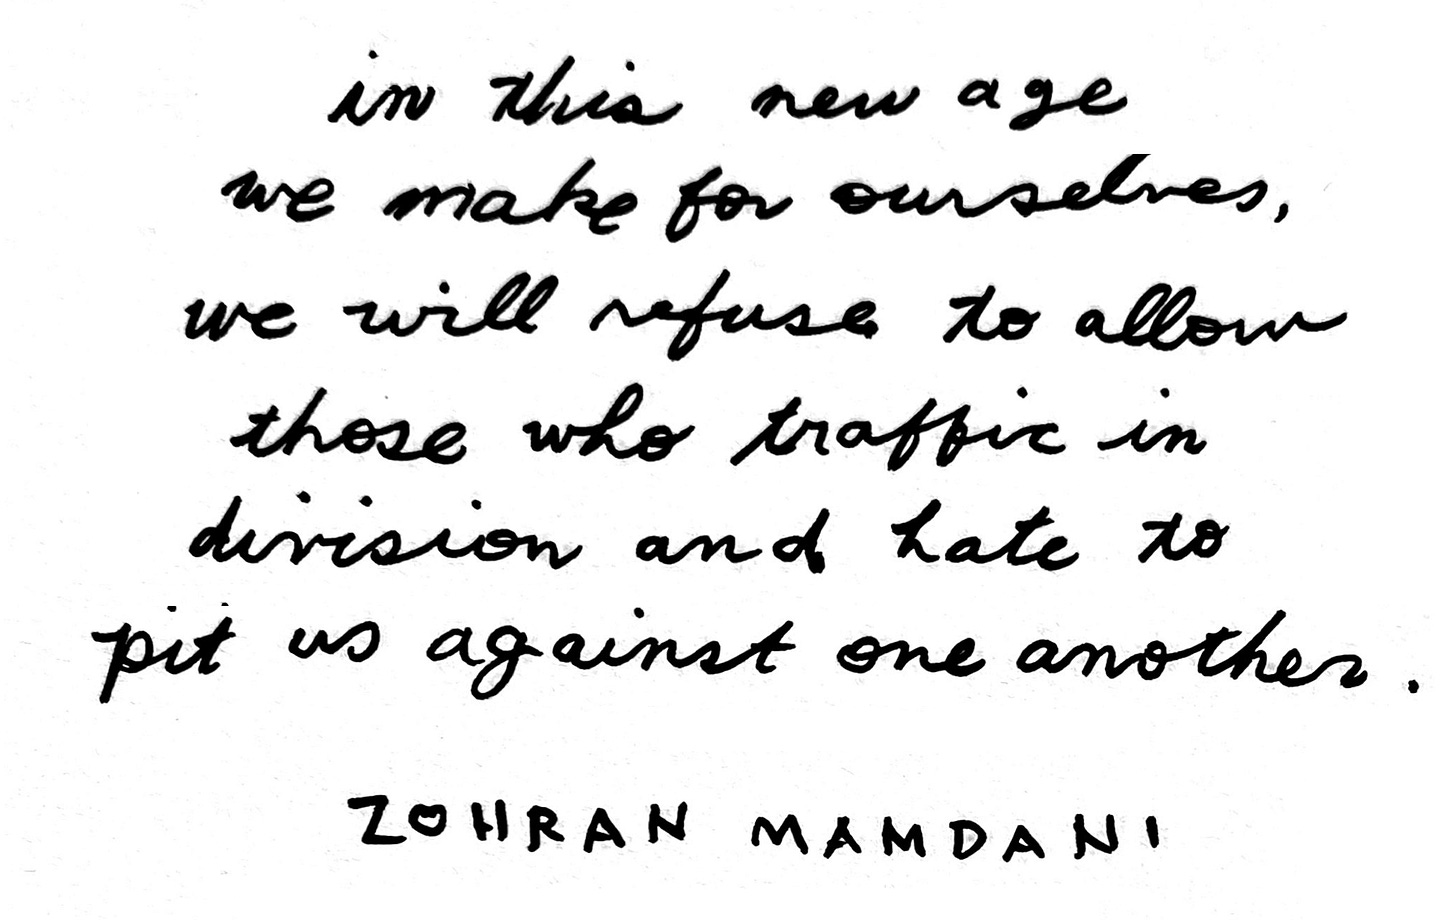 in this new age
we make for ourselves,
we will refuse to allow
those who traffic in
division and hate to
pit us against one another.
ZOHRAN MAMDANI